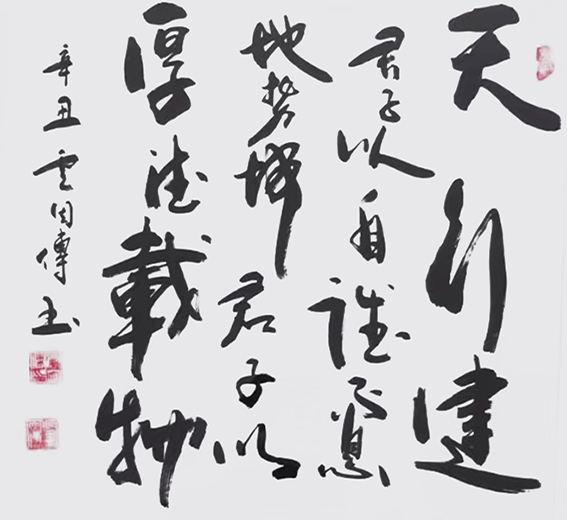 天行健
君子以自強不息
地势坤君子以
厚德載物
辛丑